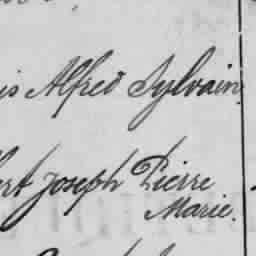 is Alfred Sylvain
ert Joseph Pierre
Marie.